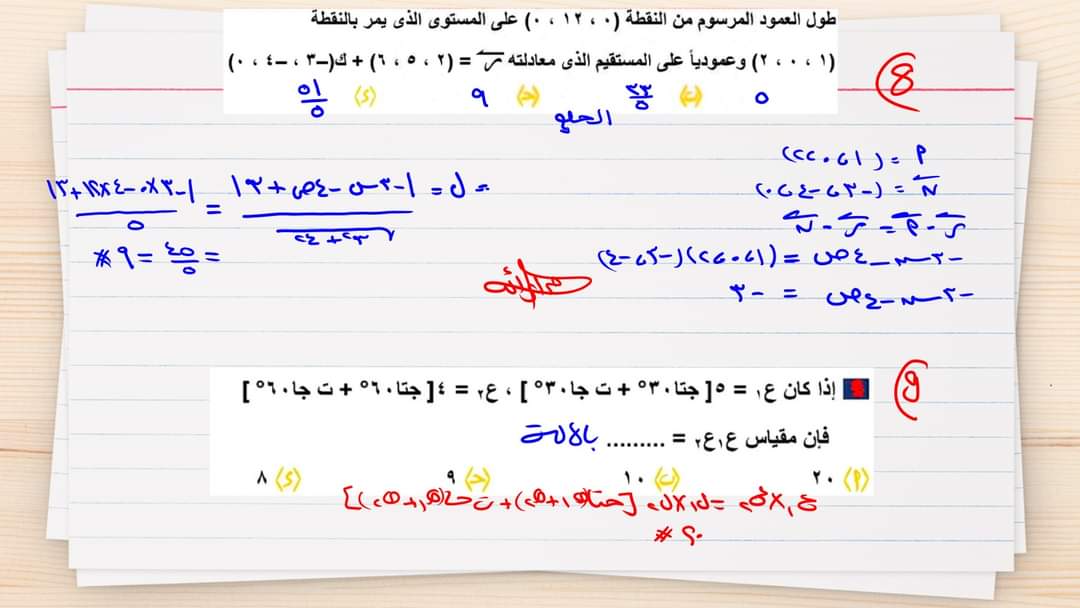 8
طول العمود المرسوم من النقطة (٠ ، ١٢ ، ٠) على المستوى الذى يمر بالنقطة
(١ ، ٠ ، ٢) وعمودياً على المستقيم الذى معادلته ر = (٢ ، ٥ ، ٦) + ك(–٣ ، –٤ ، ٠)
٥ (ب) ٣٣/٥ (ج) ٩ (د) ٥١/٥
الحل
P = (١، ٠، ٢)
N = (-٣، -٤، ٠)
ر . N = P . N
-٣س - ٤ص = (١، ٠، ٢)(-٣، -٤)
-٣س - ٤ص = -٣
ل = |-٣س - ٤ص + ٣| / √٣² + ٤² = |-٣×٠ - ٤×١٢ + ٣| / ٥
= ٤٥/٥ = ٩ #
٩
إذا كان ع₁ = ٥[ جتا٣٠° + ت جا٣٠° ] ، ع₂ = ٤[ جتا٦٠° + ت جا٦٠° ]
فإن مقياس ع₁ع₂ = .........
(P) ٢٠ (ب) ١٠ (ج) ٩ (د) ٨
ع₁×ع₂ = ل₁×ل₂ [حتا(θ₁+θ₂) + ت حا(θ₁+θ₂)]
٢٠ #